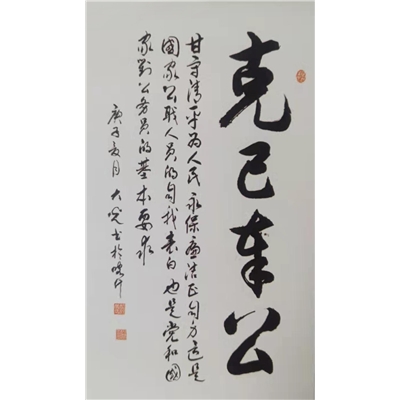 克己奉公
甘守清平为人民永保廉洁正向方这是
国家公职人员的自我表白也是党和国
家对公务员的基本要求
庚子夏月大光书于